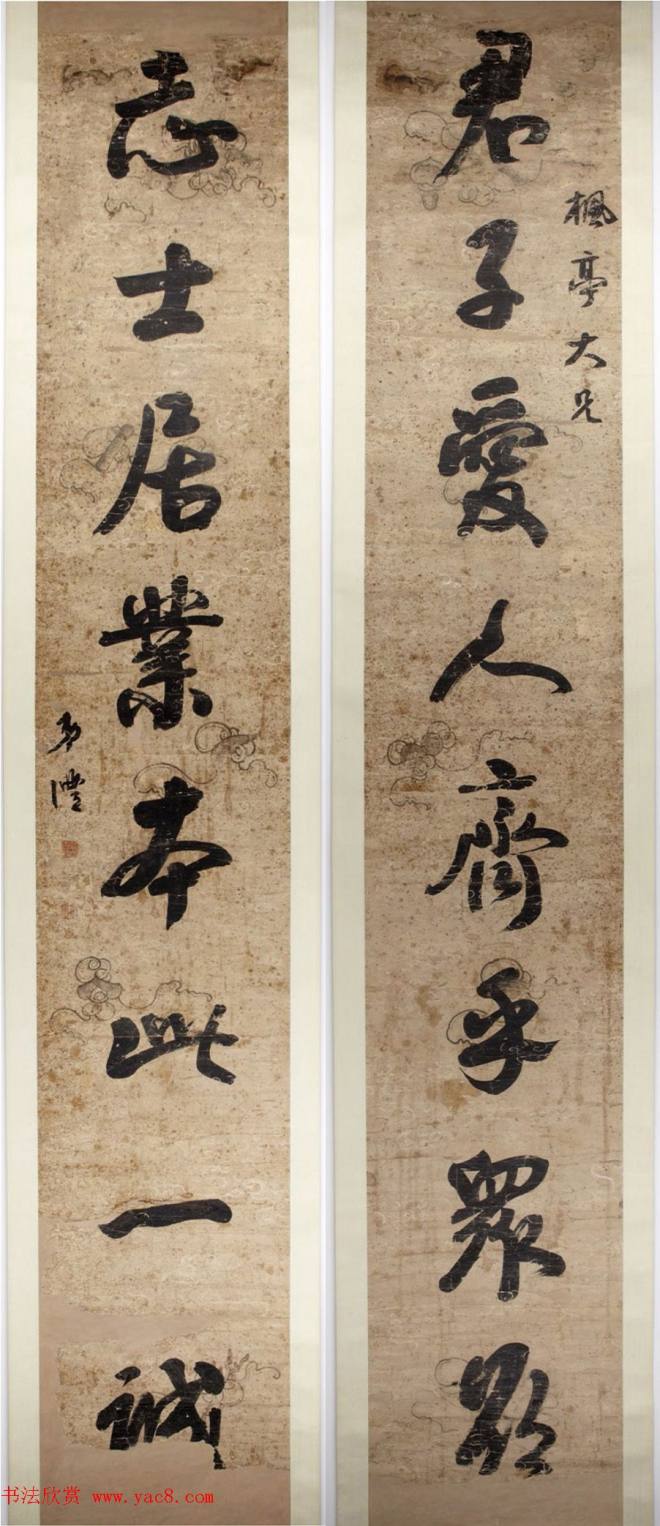 楓亭大兄
君子愛人齊乎眾欲
志士居業本此一誠
书法欣赏 www.yac8.com